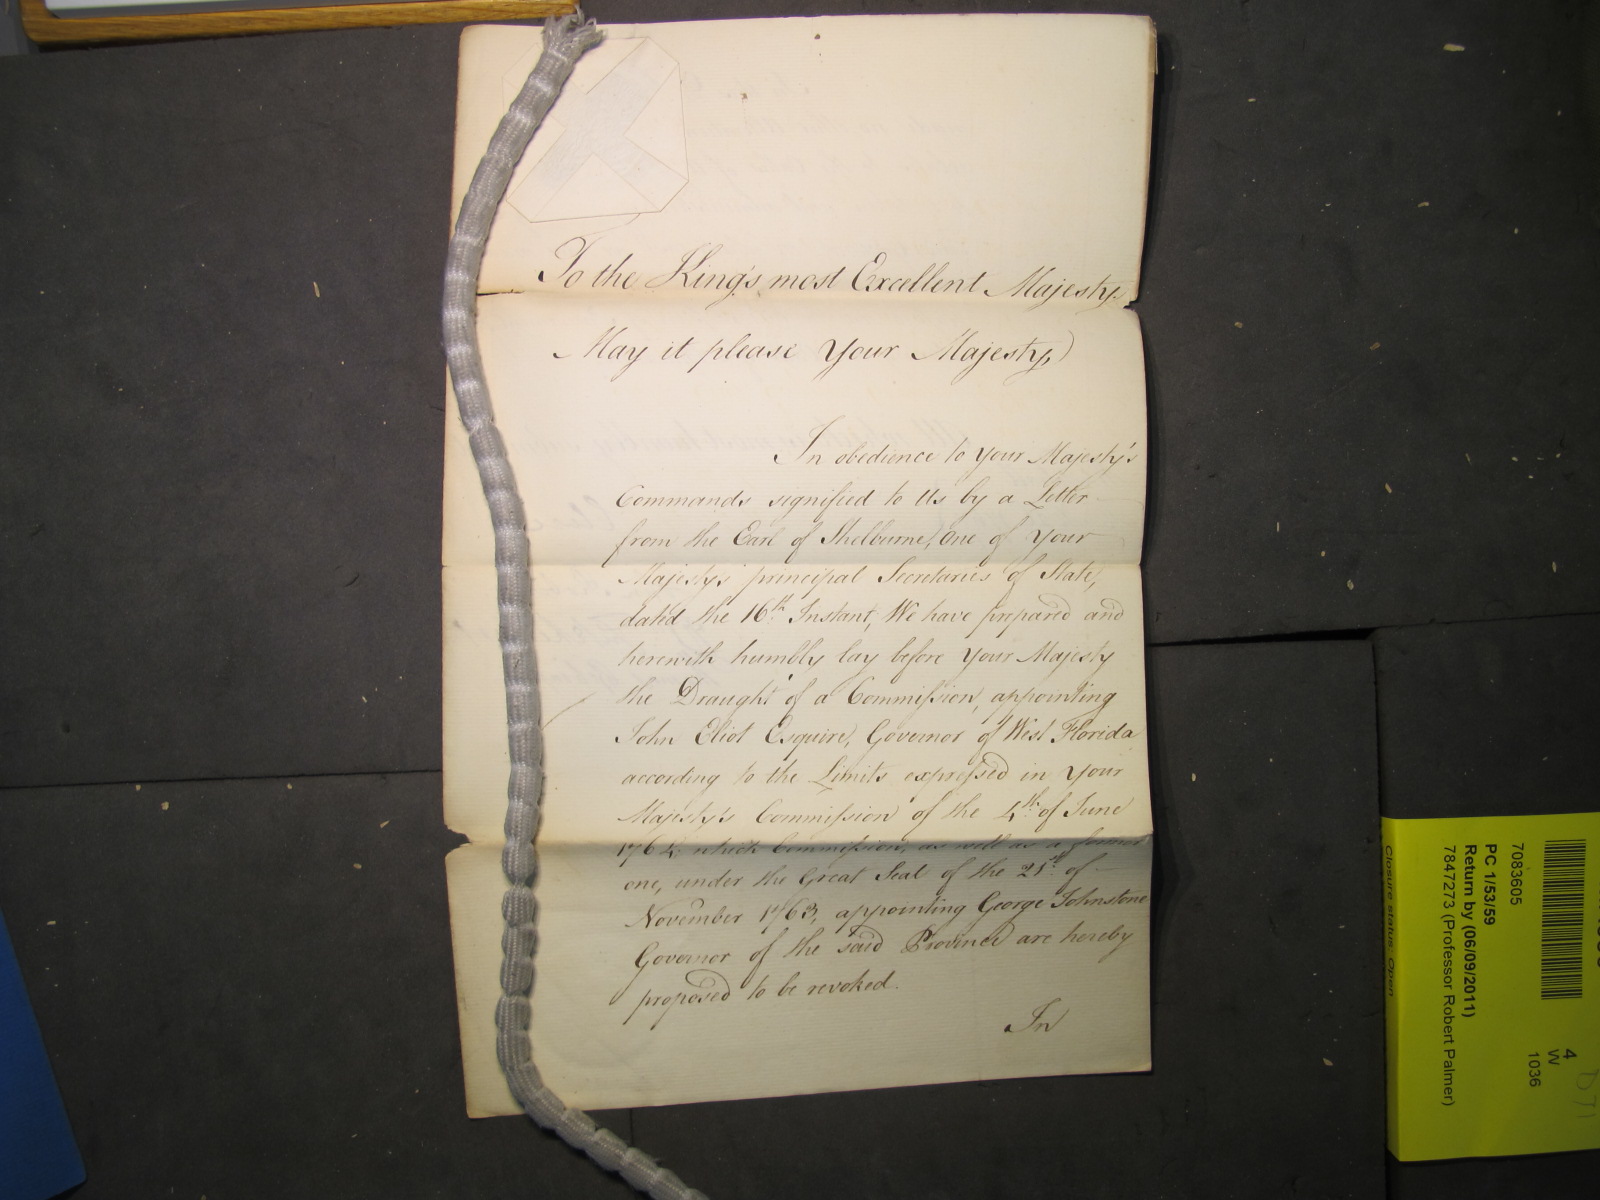 To the King's most Excellent Majesty.
May it please Your Majesty,
In obedience to Your Majesty's
Commands signified to Us by a Letter
from the Earl of Shelburne, One of Your
Majesty's principal Secretaries of State,
dated the 16th. Instant, We have prepared and
herewith humbly lay before Your Majesty
the Draught of a Commission, appointing
John Eliot Esquire, Governor of West Florida
according to the Limits expressed in Your
Majesty's Commission of the 4th. of June
1764; which Commission, as well as a former
one, under the Great Seal of the 21st. of
November 1763, appointing George Johnstone
Governor of the said Province are hereby
proposed to be revoked.
In
7083605
PC 1/53/59
Return by (06/09/2011)
7847273 (Professor Robert Palmer)
Closure status: Open
4
W
1036